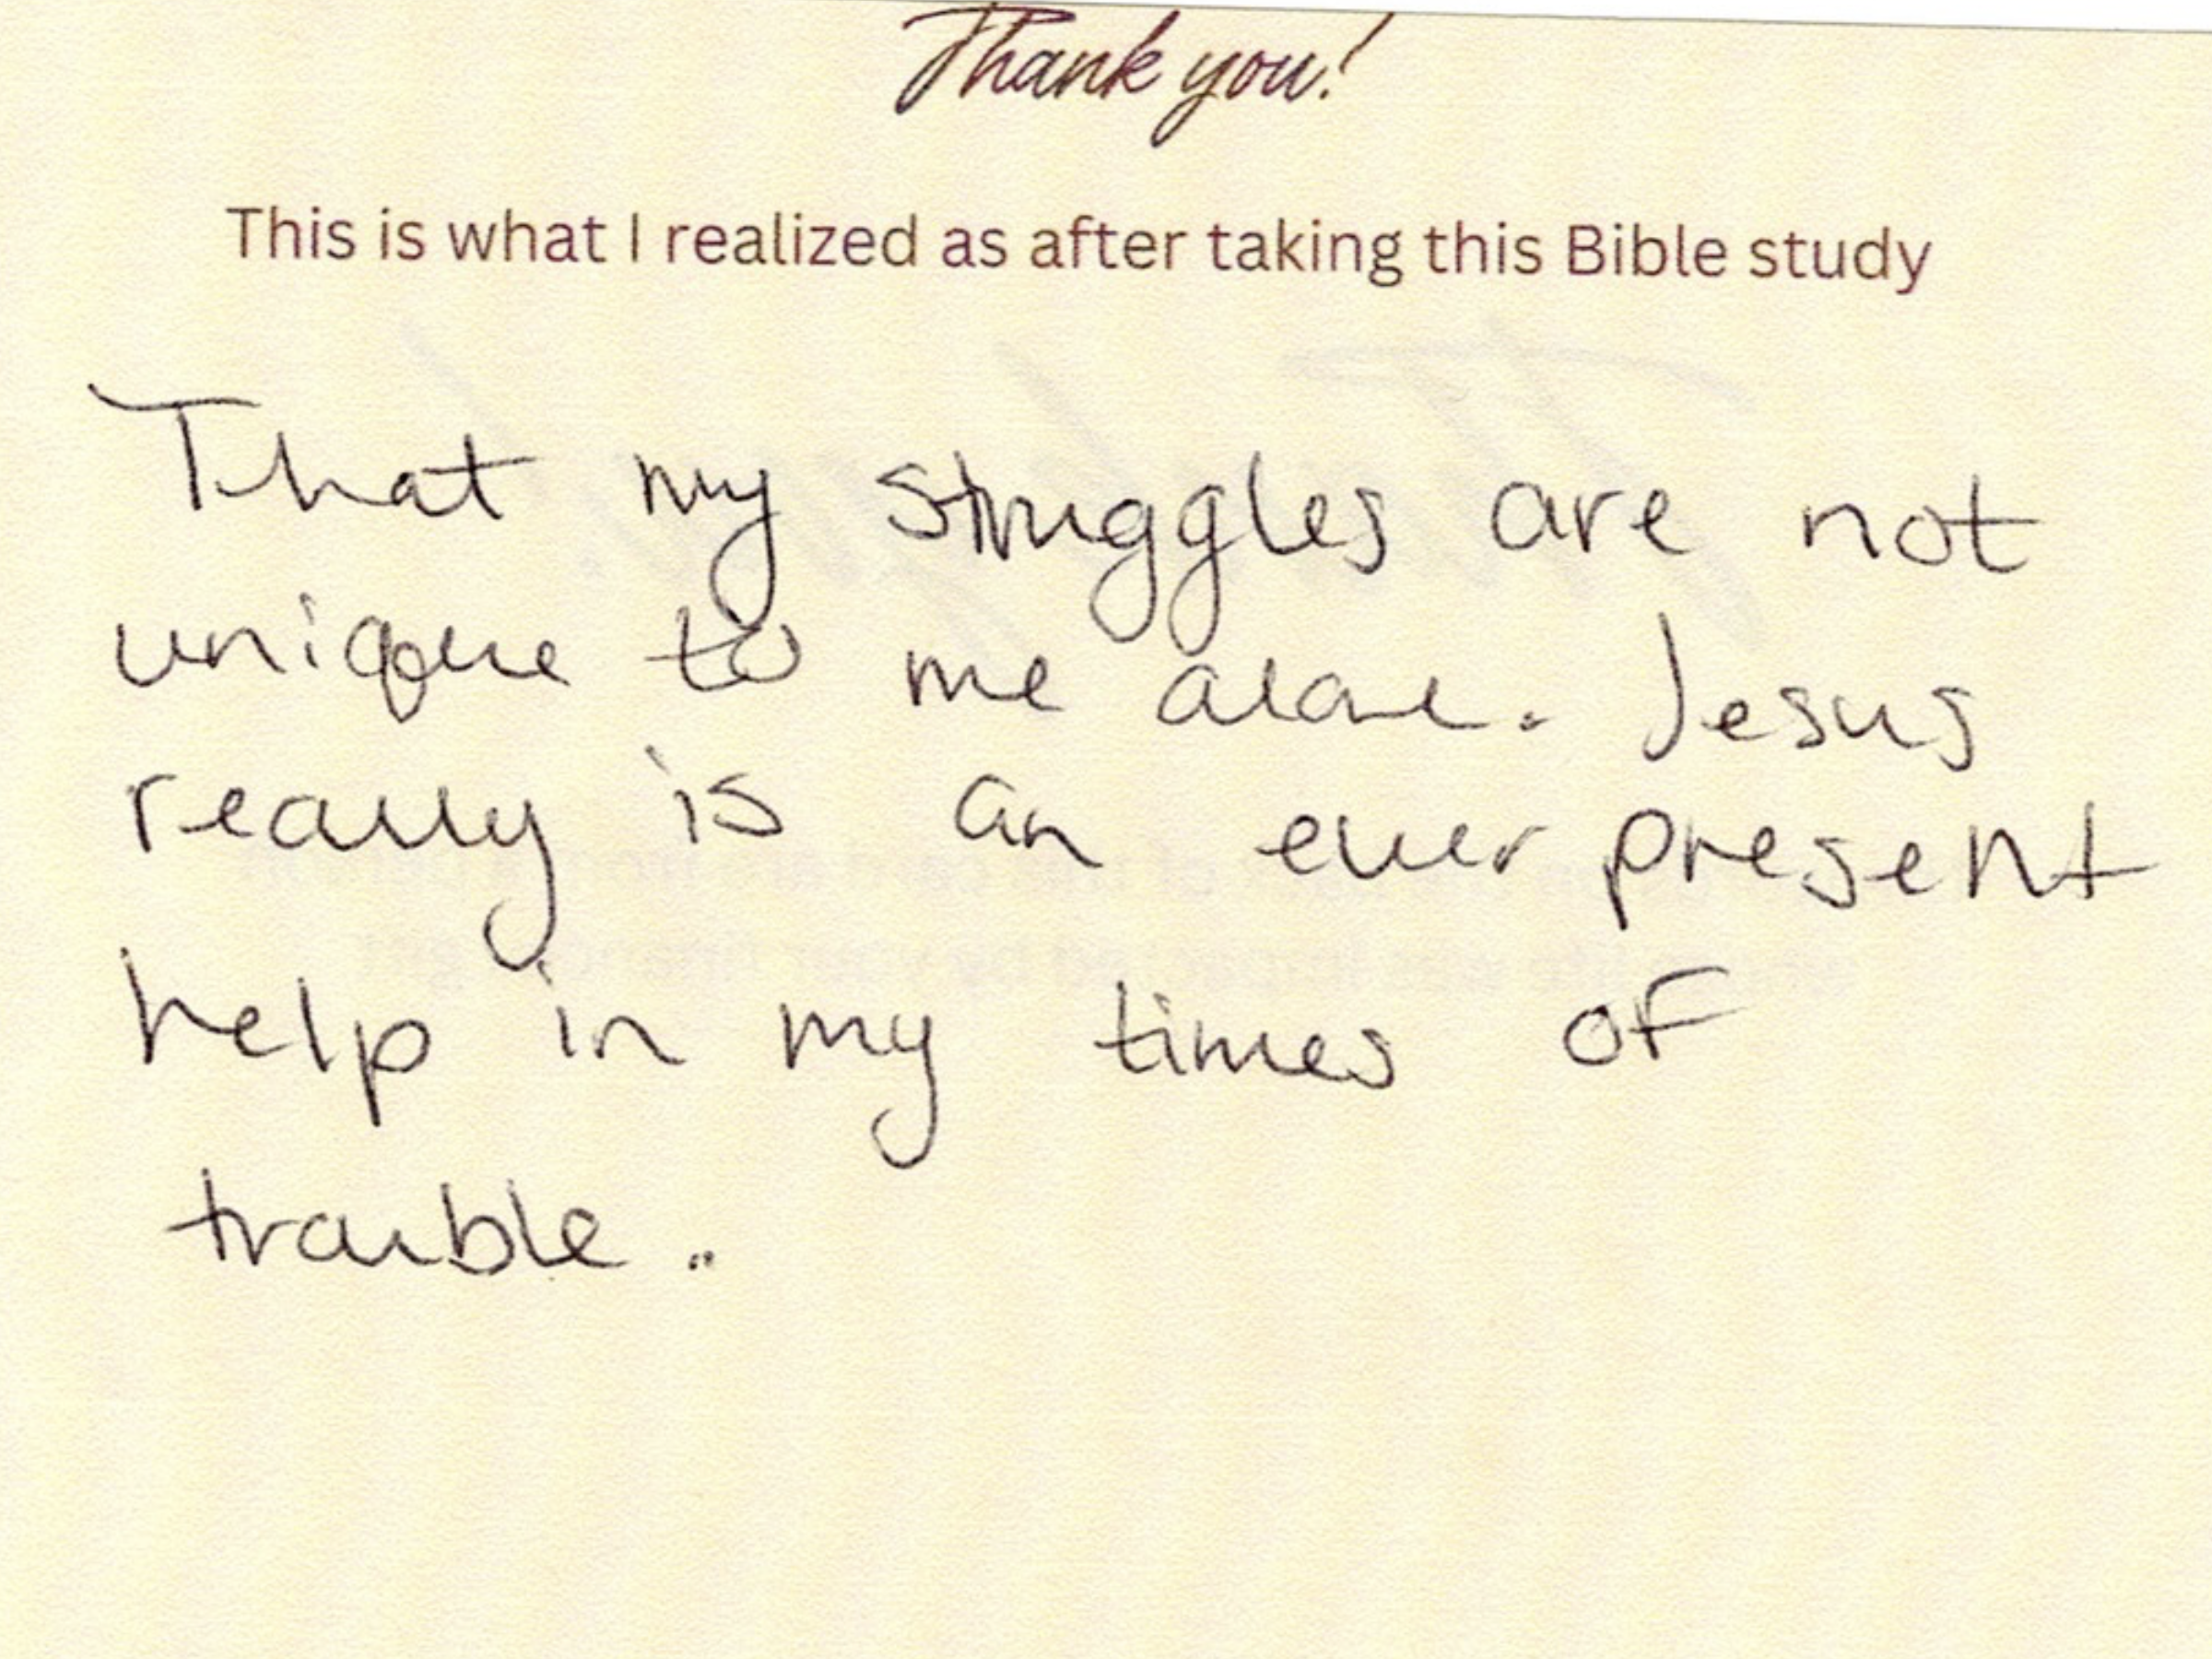 Thank you!
This is what I realized as after taking this Bible study
That my struggles are not
unique to me alone. Jesus
really is an ever present
help in my times of
trouble.